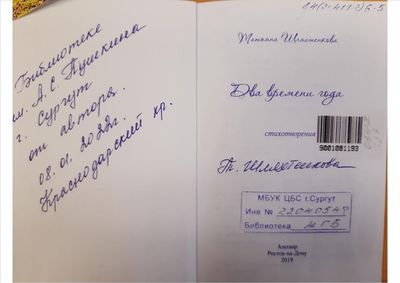 Библиотеке
им. А.С. Пушкина
г. Сургут
от автора.
08.01.2022г.
Краснодарский кр.
84(2=411.2)6-5
Татьяна Шляхтенкова
Два времени года
стихотворения
9001081193
Т. Шляхтенкова
МБУК ЦБС г.Сургут
Инв № 22040548
Библиотека ЦГБ
Альтаир
Ростов-на-Дону
2019